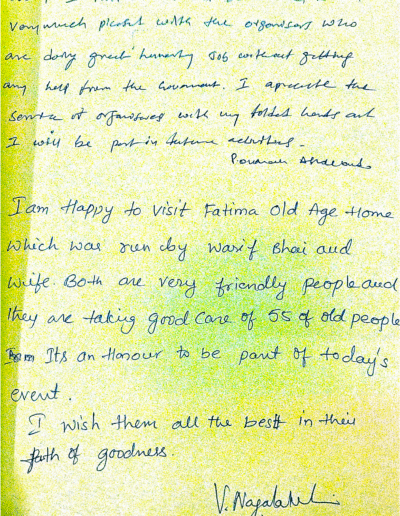 very much pleased with the organisers who
are doing great humanity Job without getting
any help from the Government. I apreciate the
service of organisers with my folded hands and
I will be part in future activities.
I am Happy to visit Fatima Old Age Home
which was run by Warif Bhai and
wife. Both are very friendly people and
they are taking good care of 55 of old people
Its an Honour to be part of today's
event.
I wish them all the best in their
path of goodness.
V. Nagalakshmi